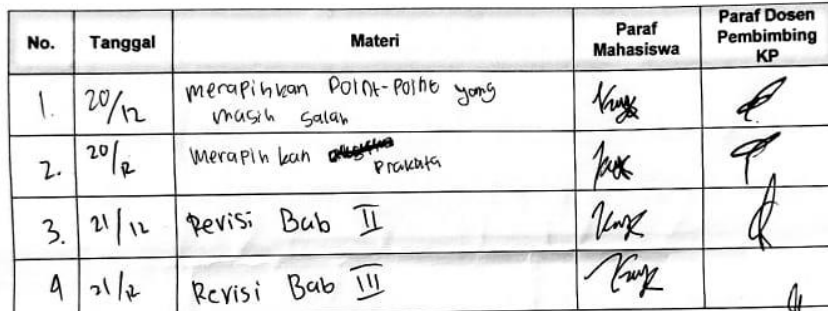 No. Tanggal Materi Paraf Mahasiswa Paraf Dosen Pembimbing KP
1. 20/12 merapihkan Point-Point yang
masih salah
2. 20/12 Merapihkan Prakata
3. 21/12 Revisi Bab II
4 21/12 Revisi Bab III